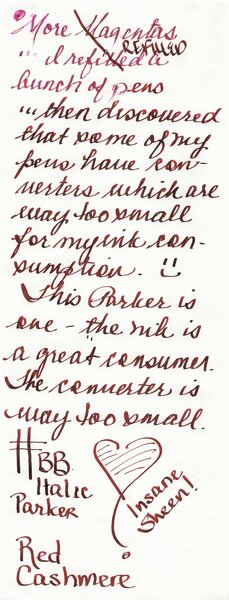 More Magentas
REFILLED
... I refilled a
bunch of pens
... then discovered
that some of my
pens have con-
verters which are
way too small
for my ink con-
sumption.
This Parker is
one - the nib is
a great consumer.
The converter is
way too small.
BB
Italic
Parker
Insane
Sheen!
Red
Cashmere